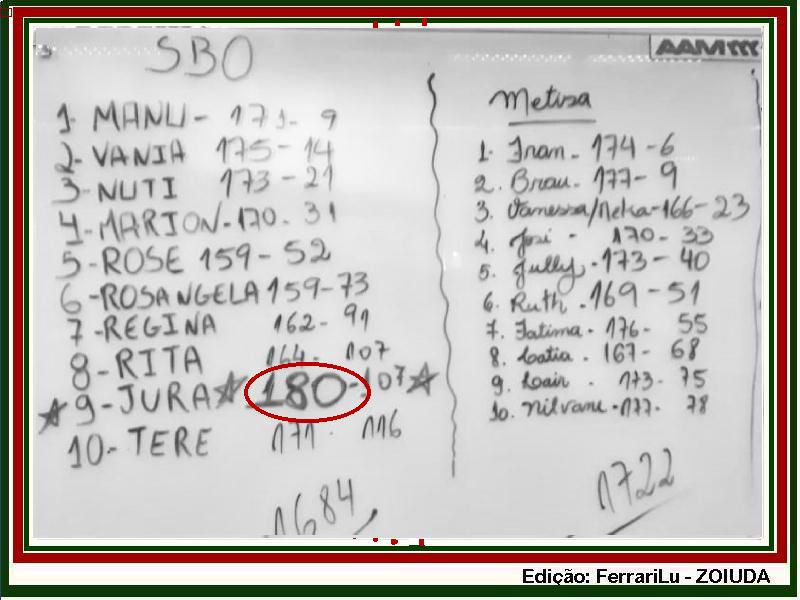 SBO
1- MANU - 171 - 9
2- VANIA 175 - 14
3- NUTI 173 - 21
4- MARION - 170 - 31
5 - ROSE 159 - 52
6 - ROSANGELA 159 - 73
7 - REGINA 162 - 91
8 - RITA 164 - 107
9 - JURA 180 - 107
10 - TERE 171 - 116
1684
AAM
Metisa
1. Fran - 174 - 6
2. Brau - 177 - 9
3. Vanessa/Neka - 166 - 23
4. Josi - 170 - 33
5. Jully - 173 - 40
6. Ruth - 169 - 51
7. Fatima - 176 - 55
8. Loatia - 167 - 68
9. Loair - 173 - 75
10. Nilvane - 177 - 78
1722
Edição: FerrariLu - ZOIUDA